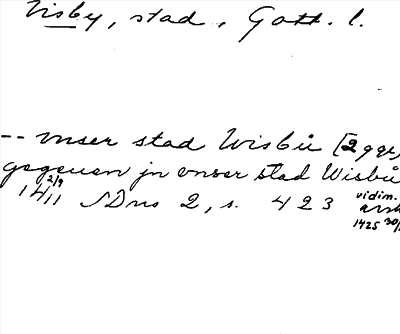 Visby, stad, Gotl. l.
-- vnser stad Wisbu [2 ggr,
gegeuen jn vnser stad Wisbů
1411 2/9 SDns 2, s. 423 vidim.
avskr
1425 30/